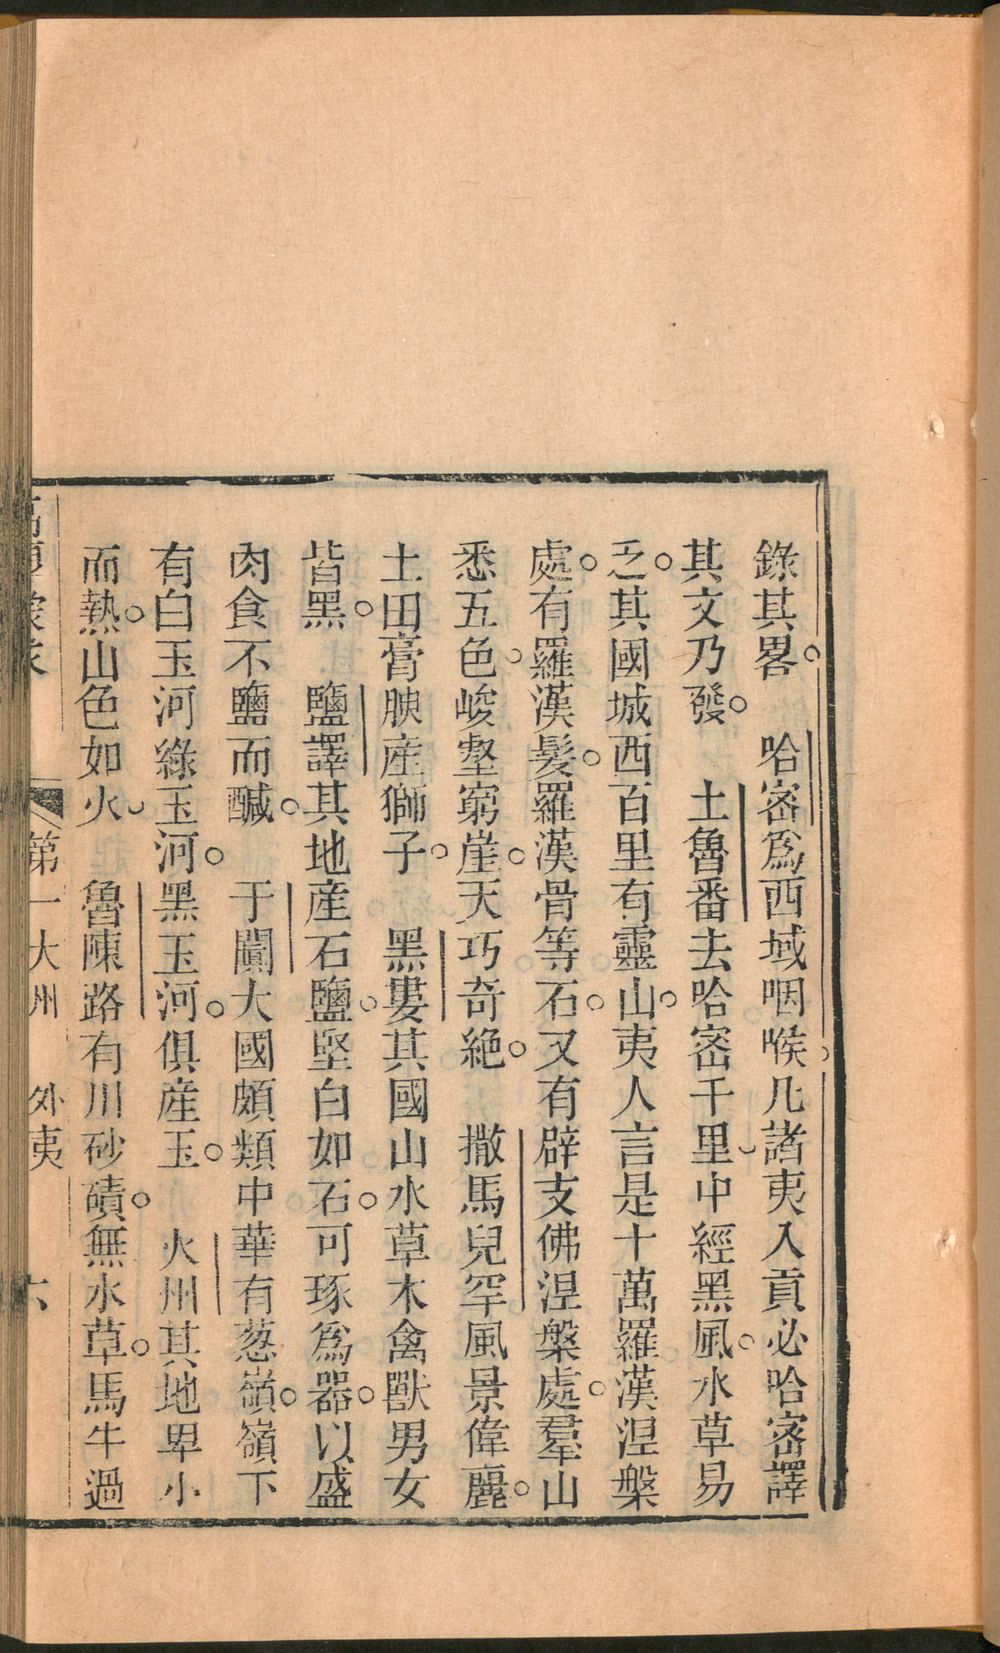 錄其畧　哈密爲西域咽喉凡諸夷入貢必哈密譯
其文乃發　土魯番去哈密千里中經黑風水草易
乏其國城西百里有靈山夷人言是十萬羅漢涅槃
處有羅漢髮羅漢骨等石又有辟支佛涅槃處羣山
悉五色峻壑窮崖天巧奇絶　撒馬兒罕風景偉麗
土田膏腴産獅子　黑婁其國山水草木禽獸男女
皆黑　鹽譯其地産石鹽堅白如石可琢爲器以盛
肉食不鹽而醎　于闐大國頗類中華有葱嶺嶺下
有白玉河綠玉河黑玉河俱産玉　火州其地卑小
而熱山色如火　魯陳路有川砂磧無水草馬牛過
第一大州　外夷　六